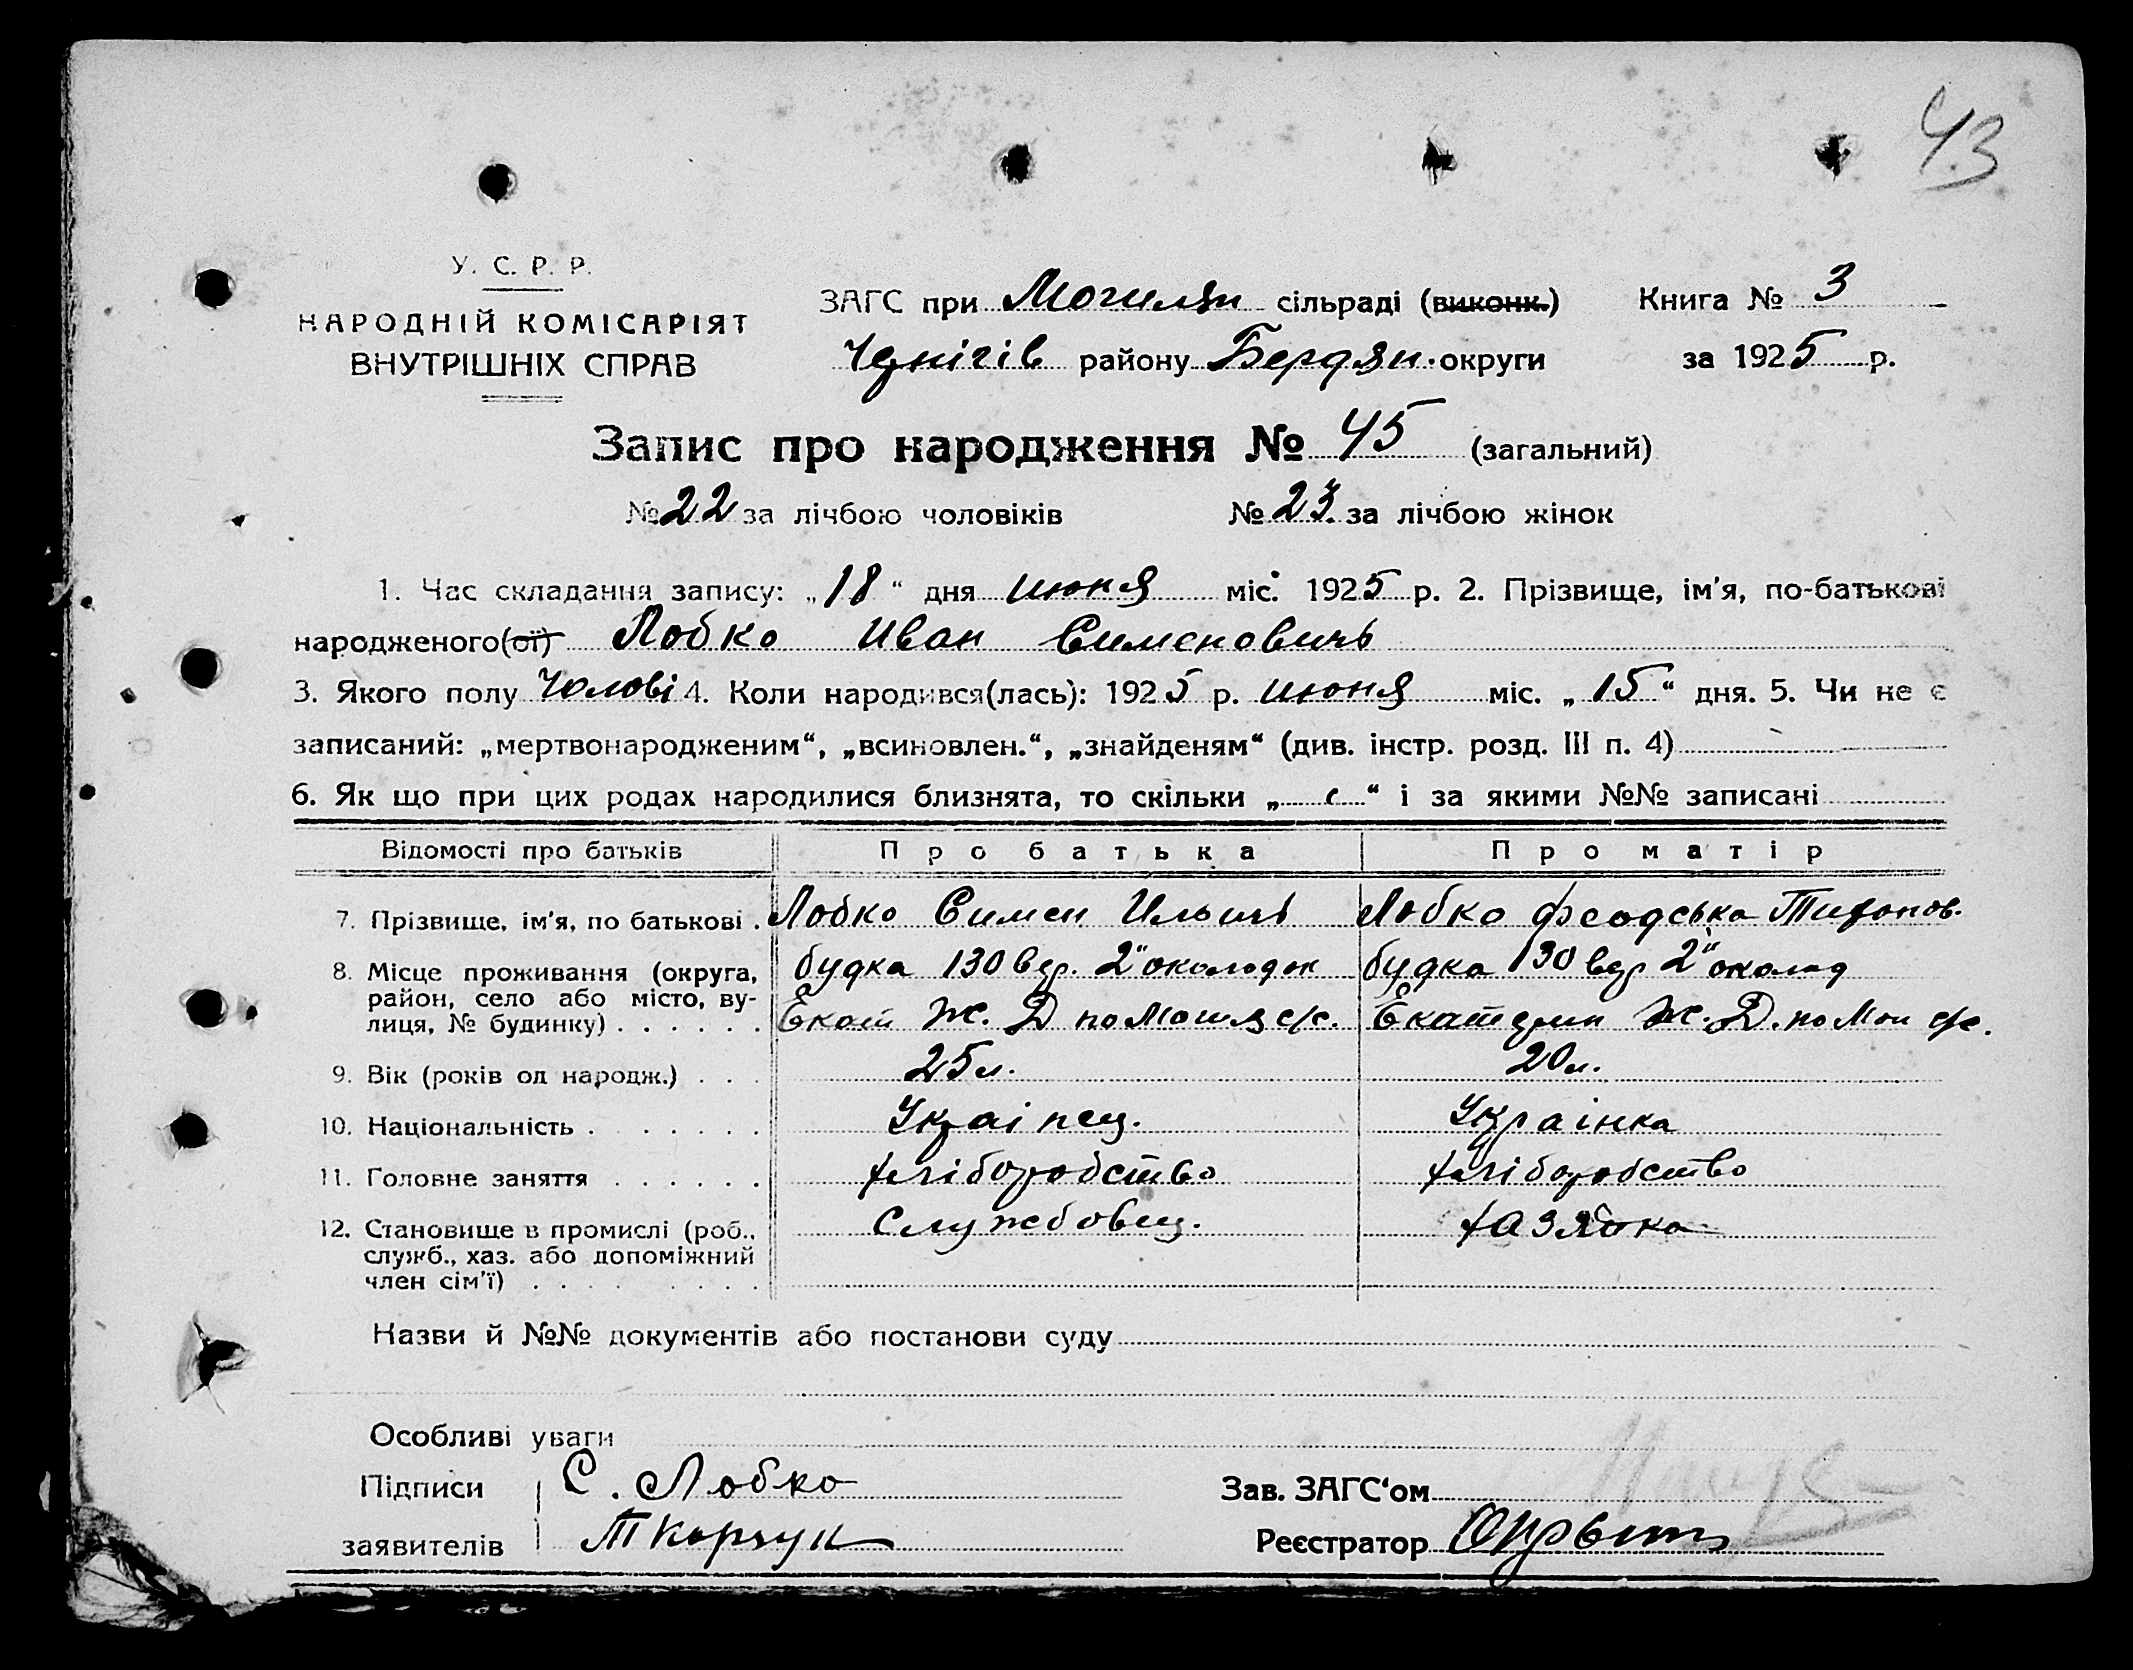 43
У. С. Р. Р.
НАРОДНІЙ КОМІСАРІЯТ
ВНУТРІШНІХ СПРАВ
ЗАГС при Могилян сільраді (виконк.) Книга № 3
Черніgів району Бердян. округи за 1925 р.
Запис про народження № 45 (загальний)
№ 22 за лічбою чоловіків № 23 за лічбою жінок
1. Час складання запису: „18“ дня июня міс. 1925 р. 2. Прізвище, ім'я, по-батькові
народженого(ої) Лобко Иван Сименовичь
3. Якого полу Чолові 4. Коли народився(лась): 1925 р. июня міс. „15“ дня. 5. Чи не є
записаний: „мертвонародженим“, „всиновлен.“, „знайденям“ (див. інстр. розд. III п. 4)
6. Як що при цих родах народилися близнята, то скільки „ “ і за якими №№ записані
Відомості про батьків Про батька Про матір
7. Прізвище, ім'я, по батькові . Лобко Симен Ильичь Лобко Феодська
8. Місце проживання (округа, район, село або місто, вулиця, № будинку) . . . . . . будка 130 вер. 2" околодок будка 130 вер 2" околод
Екат Ж. Д по с/с. Ж. Д. по с/с.
9. Вік (років од народж.) . . . 25 л. 20 л.
10. Національність . . . . . . . Украінец. Украінка
11. Головне заняття . . . . . . хліборобство хліборобство
12. Становище в промислі (роб., служб., хаз. або допоміжний член сім'ї) . . . . . . . . Службовец. хазяйка
Назви й №№ документів або постанови суду
Особливі уваги
Підписи С. Лобко Зав. ЗАГС‘ом
заявителів Ткорчук Реєстратор